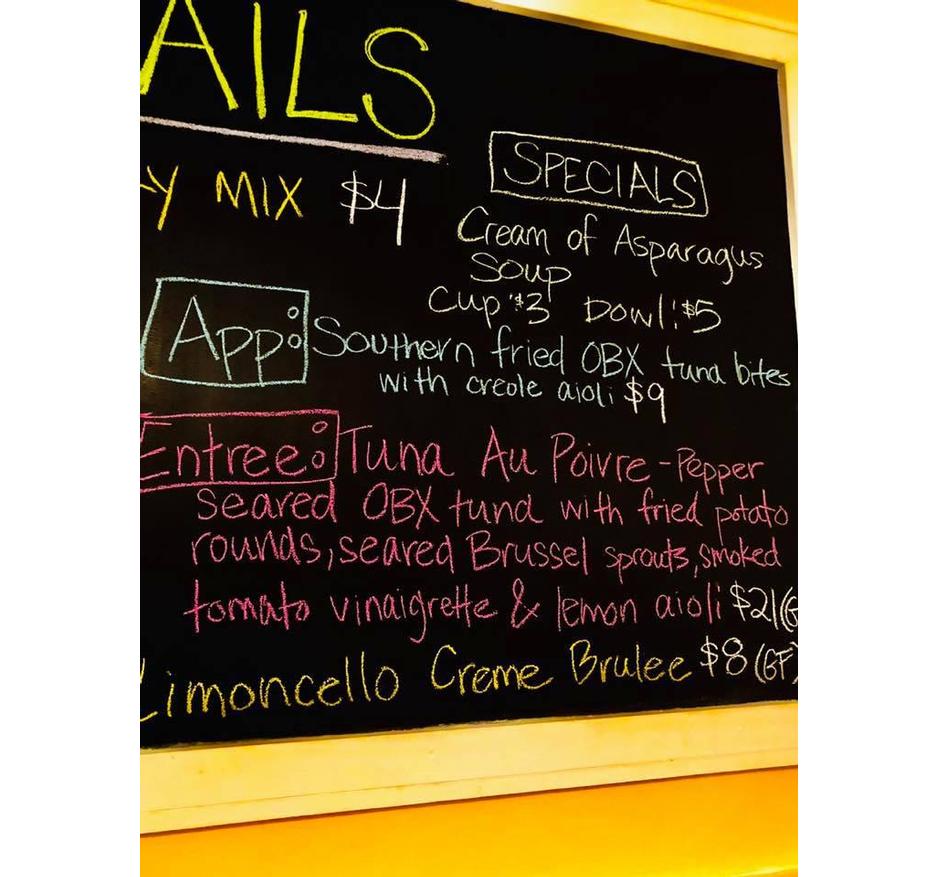 AILS
LY MIX $4
SPECIALS
Cream of Asparagus
Soup
Cup: $3 Bowl: $5
App: Southern fried OBX tuna bites
with creole aioli $9
Entree: Tuna Au Poivre - Pepper
seared OBX tuna with fried potato
rounds, seared Brussel sprouts, smoked
tomato vinaigrette & lemon aioli $21 (G
Limoncello Creme Brulee $8 (GF)